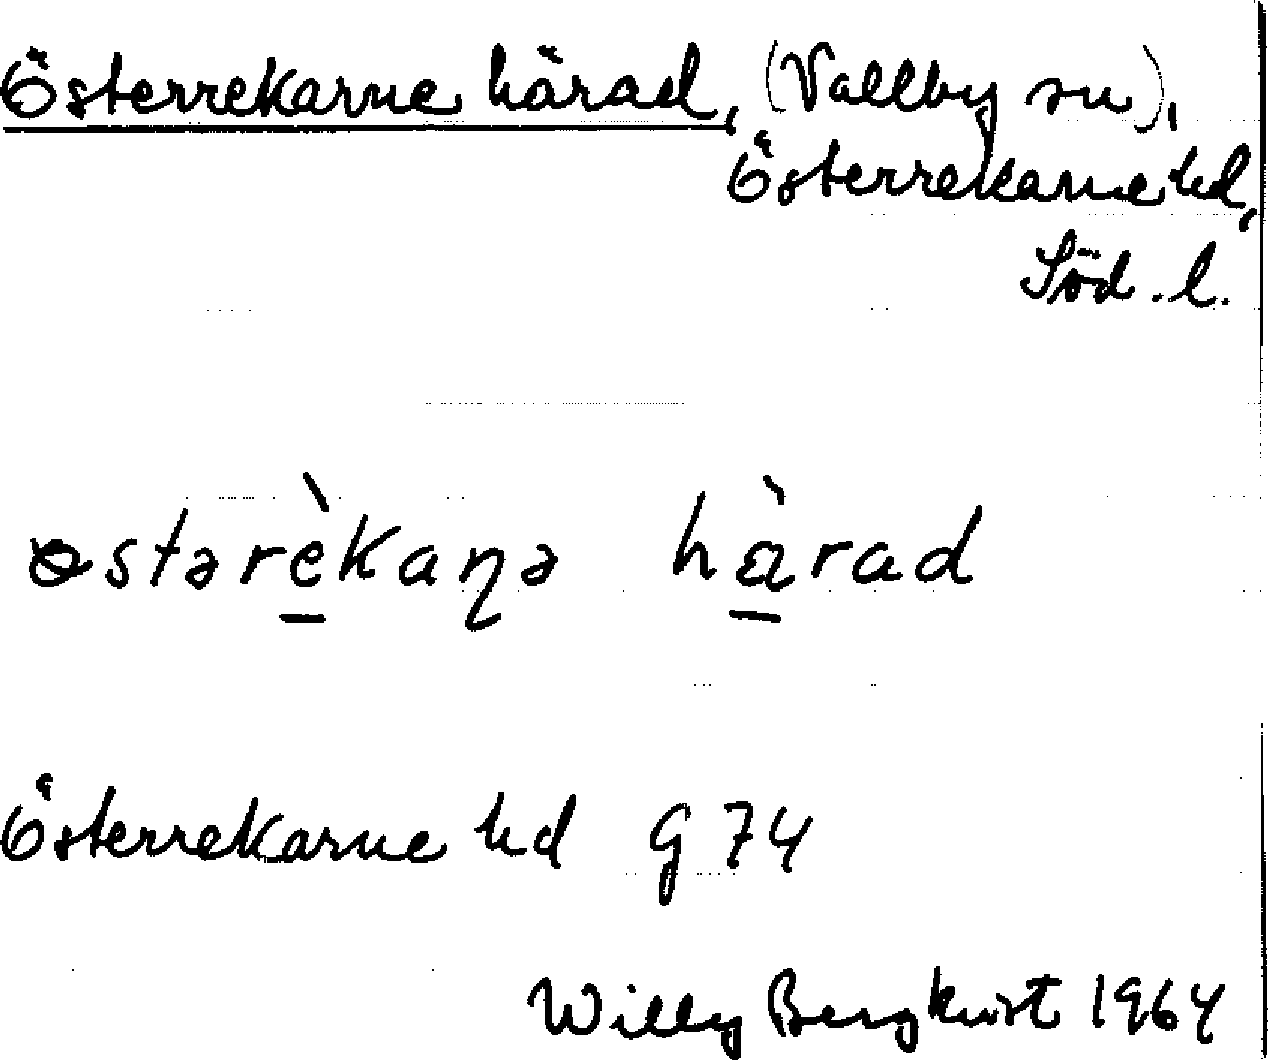 Österrekarne härad, (Vallby sn),
Österrekarne hd,
Söd. l.
ɵstərè̱kaɳə hà̱rad
Österrekarne hd G 74
Willy Bergkvist 1964